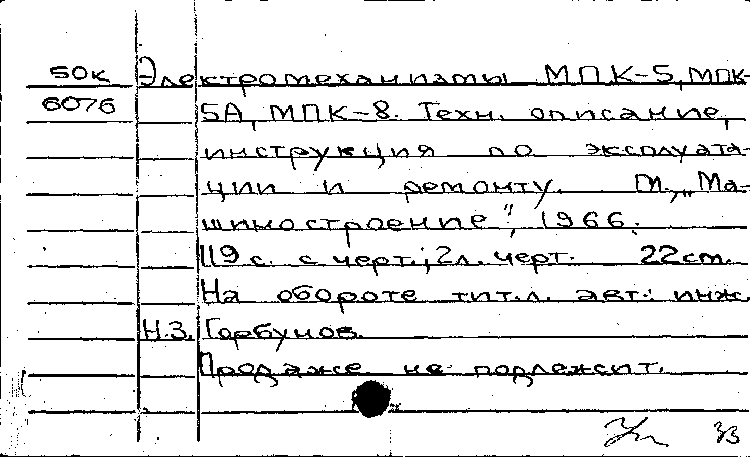 50к Электромеханизмы МПК-5, МПК-
6076 5А, МПК-8. Техн. описание,
инструкция по эксплуата-
ции и ремонту. М., „Ма-
шиностроение", 1966.
119 с. с черт.; 2 л. черт. 22 см.
На обороте тит. л. авт.: инж.
Н.З. Горбунов.
Продаже не подлежит.
33